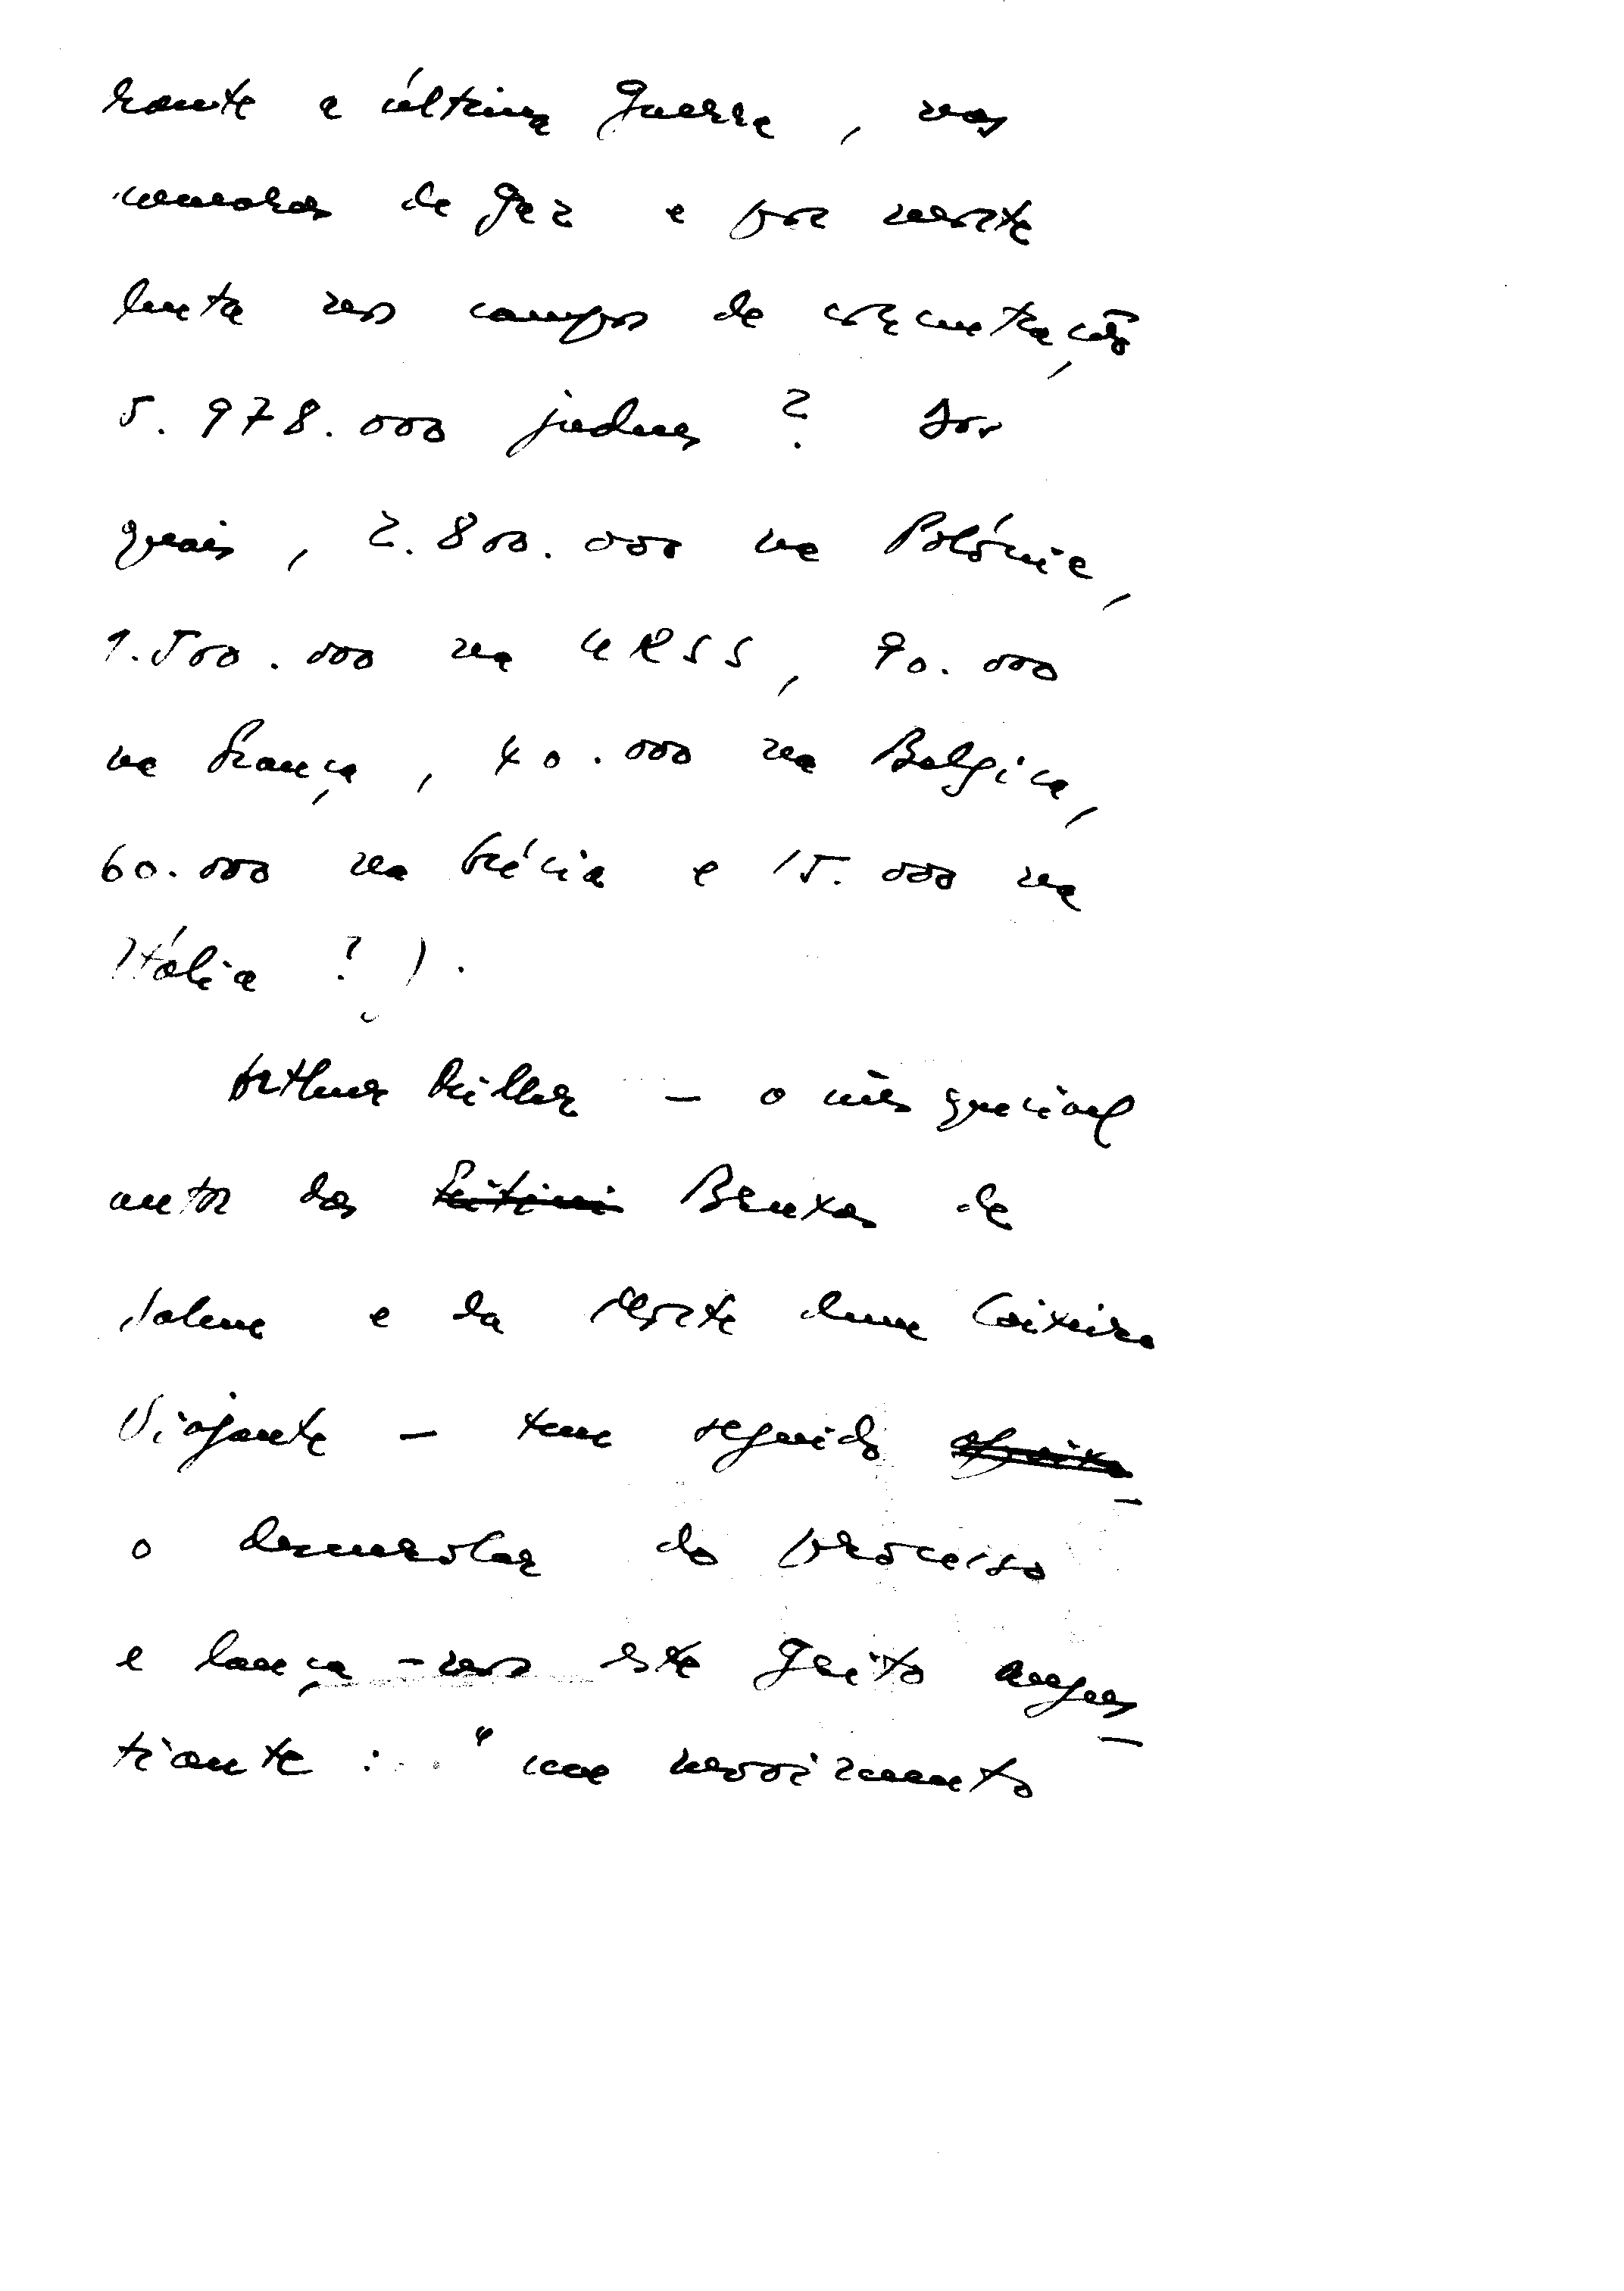 rante a última guerra, nas
camaras de gaz e por morte
lenta nos campos de concentração,
5.978.000 judeus? Dos
quais, 2.800.000 na Polónia,
1.500.000 na URSS, 90.000
na França, 40.000 na Belgica,
60.000 na Grécia e 15.000 na
Itália?).
Arthur Miller — o inesquecivel
autor das Bruxas de
Salem e da Morte dum Caixeiro
Viajante — tem seguido
o desenrolar do processo
e lança-nos este grito angus-
tiante: "um movimento